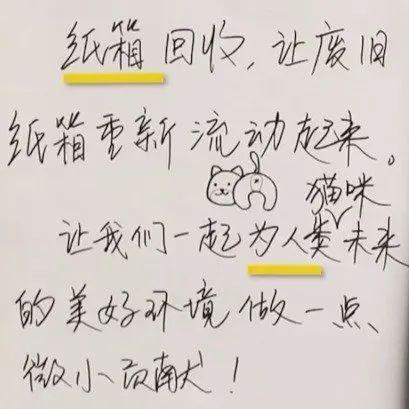 纸箱回收,让废旧
纸箱重新流动起来。
猫咪
让我们一起为人类未来
的美好环境做一点
微小贡献!